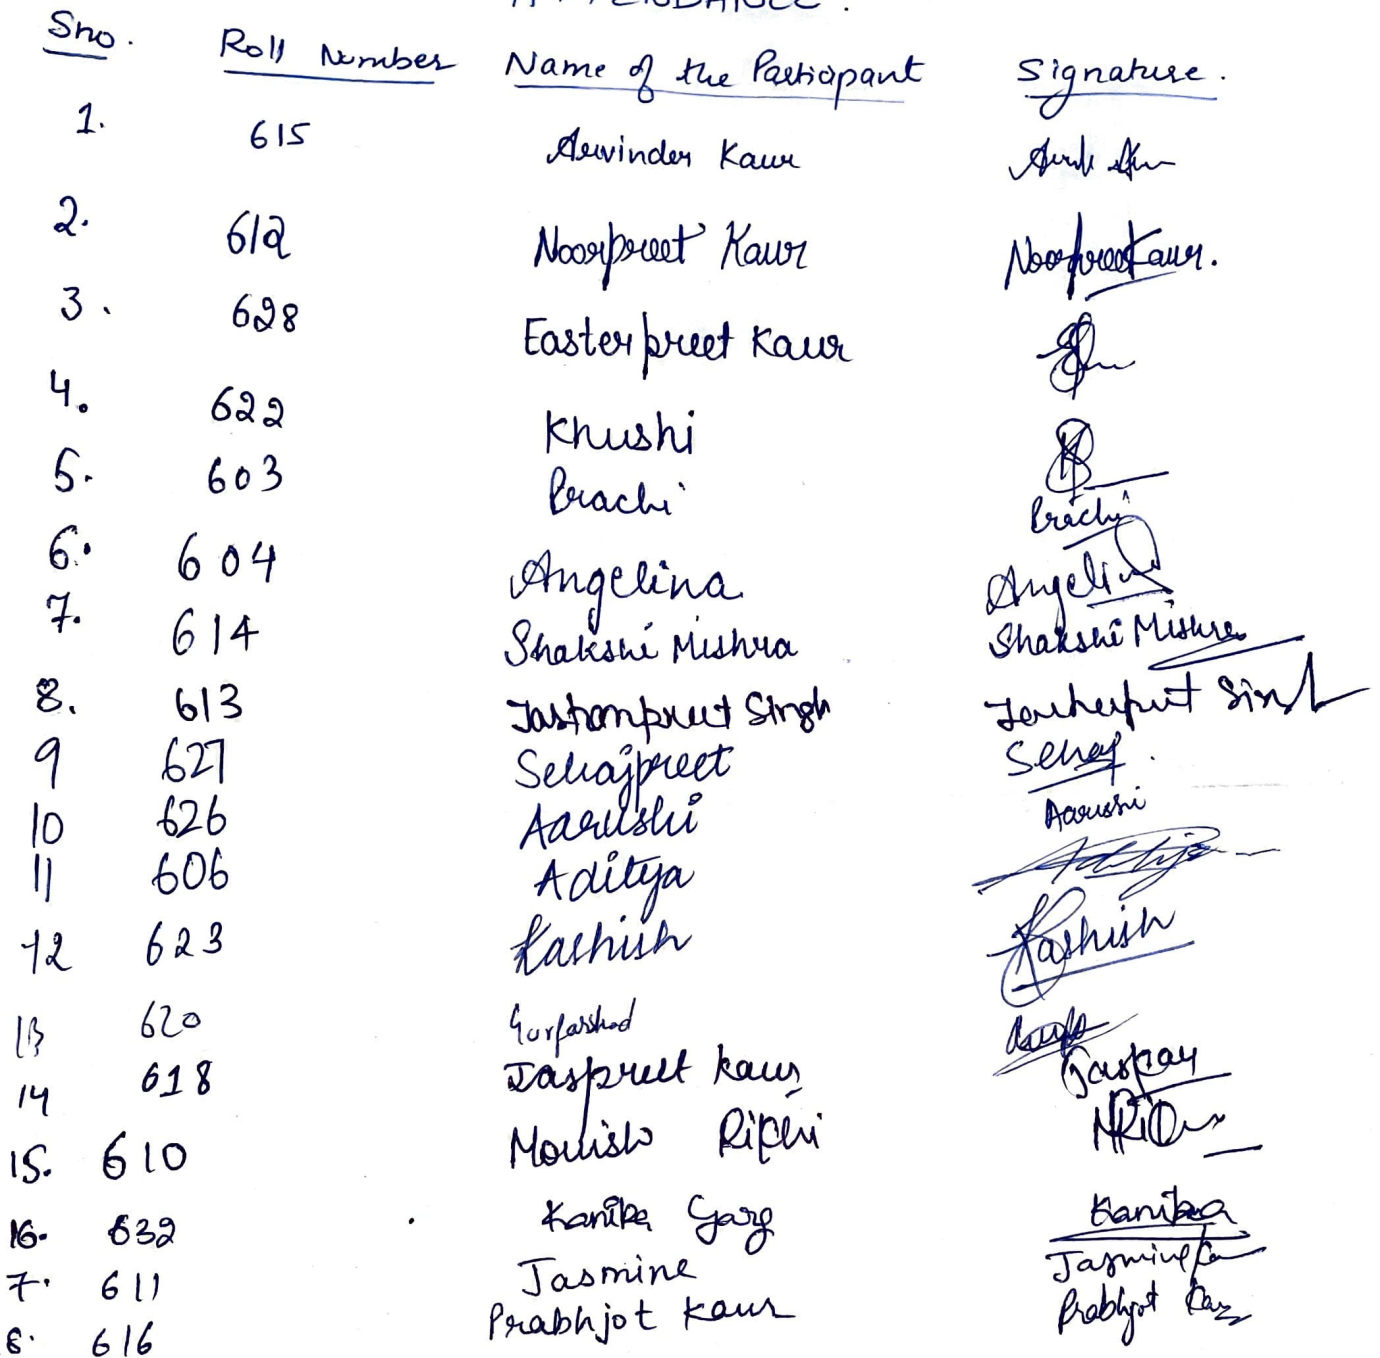 ATTENDANCE.
Sno. Roll Number Name of the Participant Signature.
1. 615 Arwinder Kaur
2. 612 Noorpreet Kaur Noorpreet Kaur.
3. 628 Easterpreet Kaur
4. 622 Khushi
5. 603 Prachi Prachi
6. 604 Angelina Angelina
7. 614 Shakshi Mishra Shakshi Mishra
8. 613 Jashanpreet Singh
9 627 Sehajpreet Sehaj.
10 626 Aarushi Aarushi
11 606 Aditya Aditya
12 623 Kashish Kashish
13 620
14 618 Jaspreet Kaur
15. 610
16. 632 Kanika Garg Kanika
7. 611 Jasmine Jasmine
8. 616 Prabhjot Kaur Prabhjot Kaur